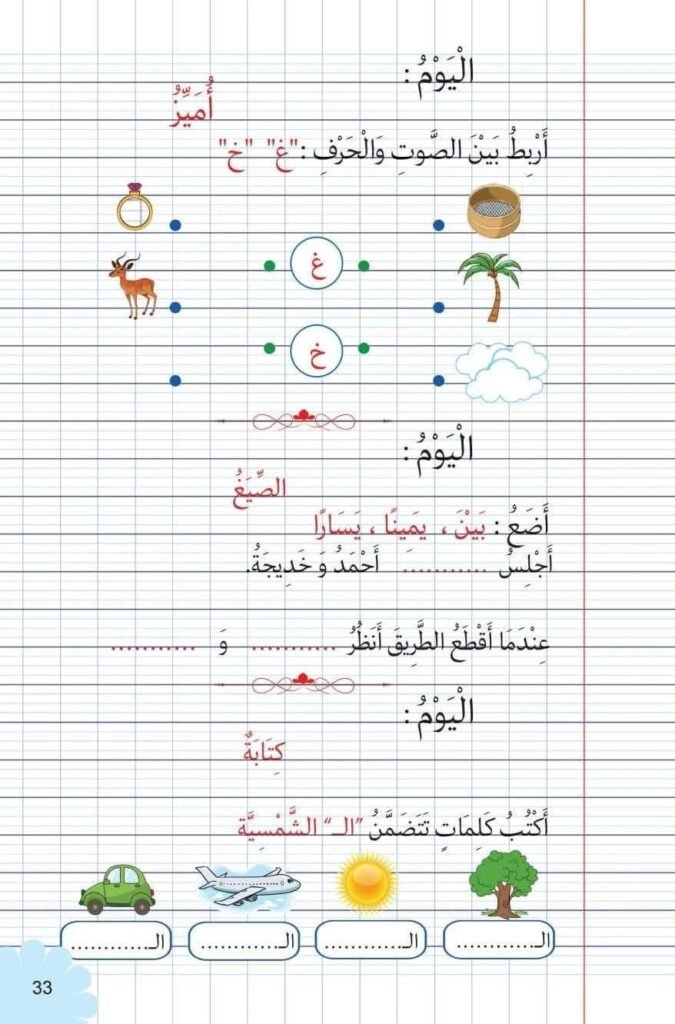 الْيَوْمُ :
أُمَيِّزُ
أَرْبِطُ بَيْنَ الصَّوتِ وَالْحَرْفِ :"غ" "خ"
غ
خ
الْيَوْمُ :
الصِّيَغُ
أَضَعُ : بَيْنَ ، يَمِينًا ، يَسَارًا
أَجْلِسُ ........... أَحْمَدُ وَ خَدِيجَةُ.
عِنْدَمَا أَقْطَعُ الطَّرِيقَ أَنَظُرُ ........... وَ ...........
الْيَوْمُ :
كِتَابَةٌ
أَكْتُبُ كَلِمَاتٍ تَتَضَمَّنُ "الـ" الشَّمْسِيَّة
الـ............ الـ............ الـ............ الـ............
33